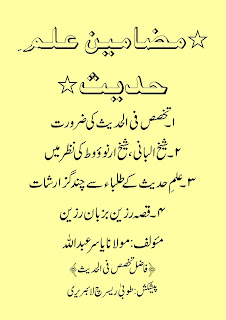 ☆مضامین علم
حدیث☆
۱۔تخصص فی الحدیث کی ضرورت
۲۔شیخ البانی، شیخ ارنووٗوط کی نظر میں
۳۔علم حدیث کے طلباء سے چند گزارشات
۴۔قصہ رزین بزبان رزین
مئولف: مولانا یاسر عبداللہ
﴿فاضل تخصص فی الحدیث﴾
پیشکش: طوبیٰ ریسرچ لائبریری